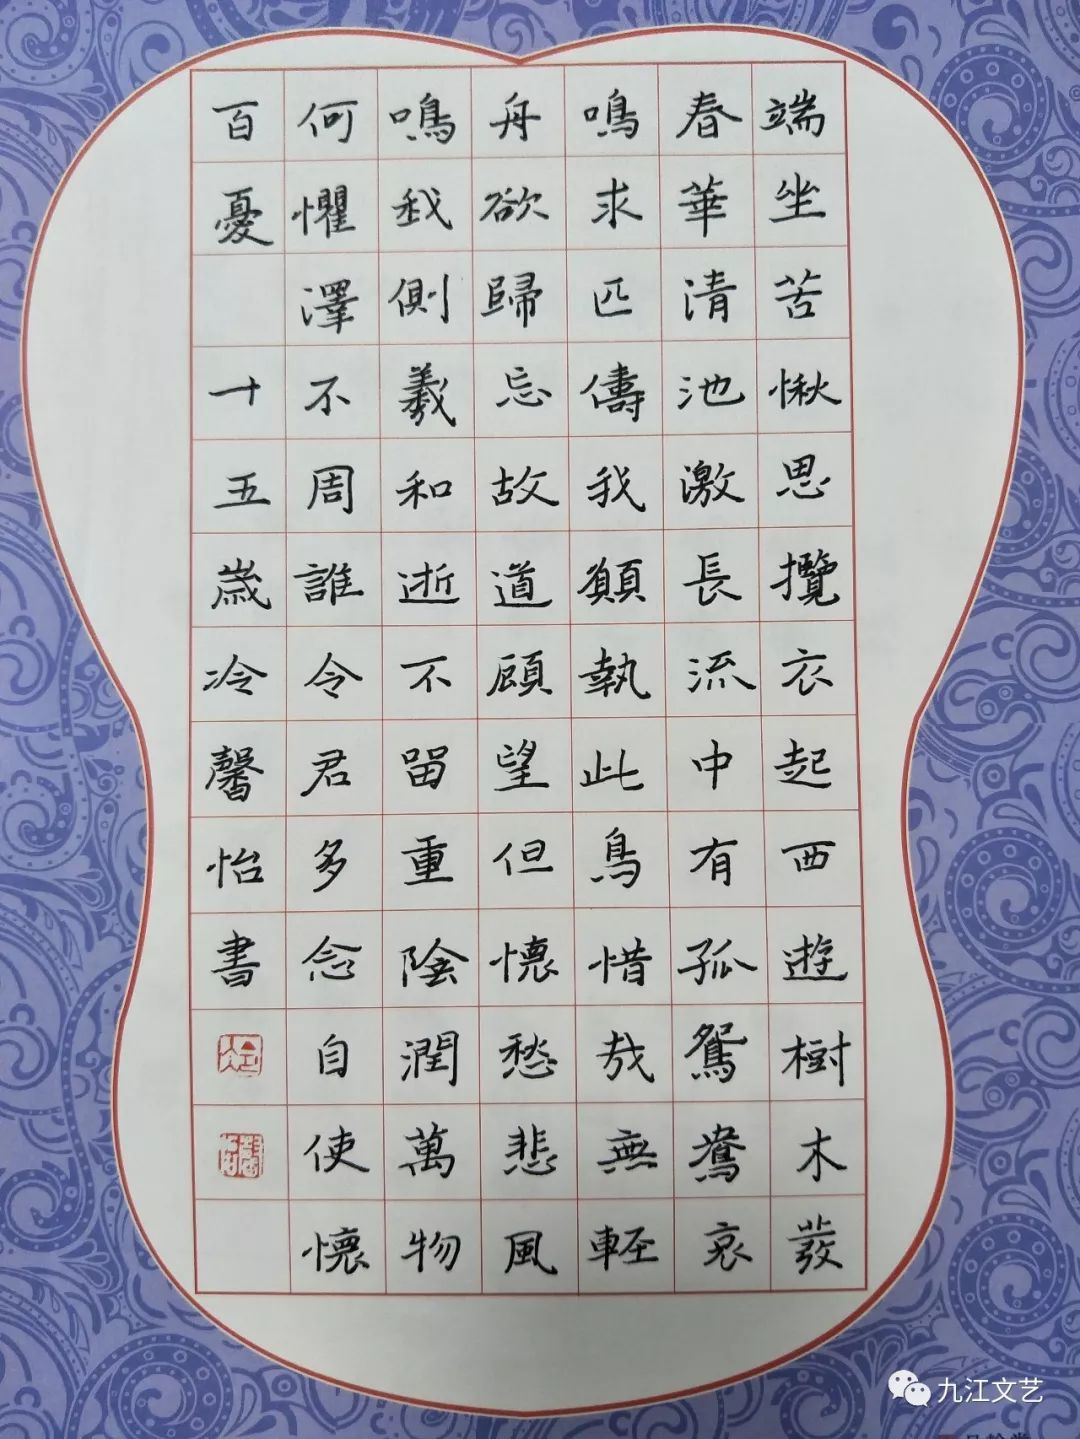 端坐苦愀思攬衣起西遊樹木發
春華清池激長流中有孤鴛鴦哀
鳴求匹儔我願執此鳥惜哉無輕
舟欲歸忘故道顧望但懷愁悲風
鳴我側羲和逝不留重陰潤萬物
何懼澤不周誰令君多念自使懷
百憂
十五歲冷馨怡書
九江文艺